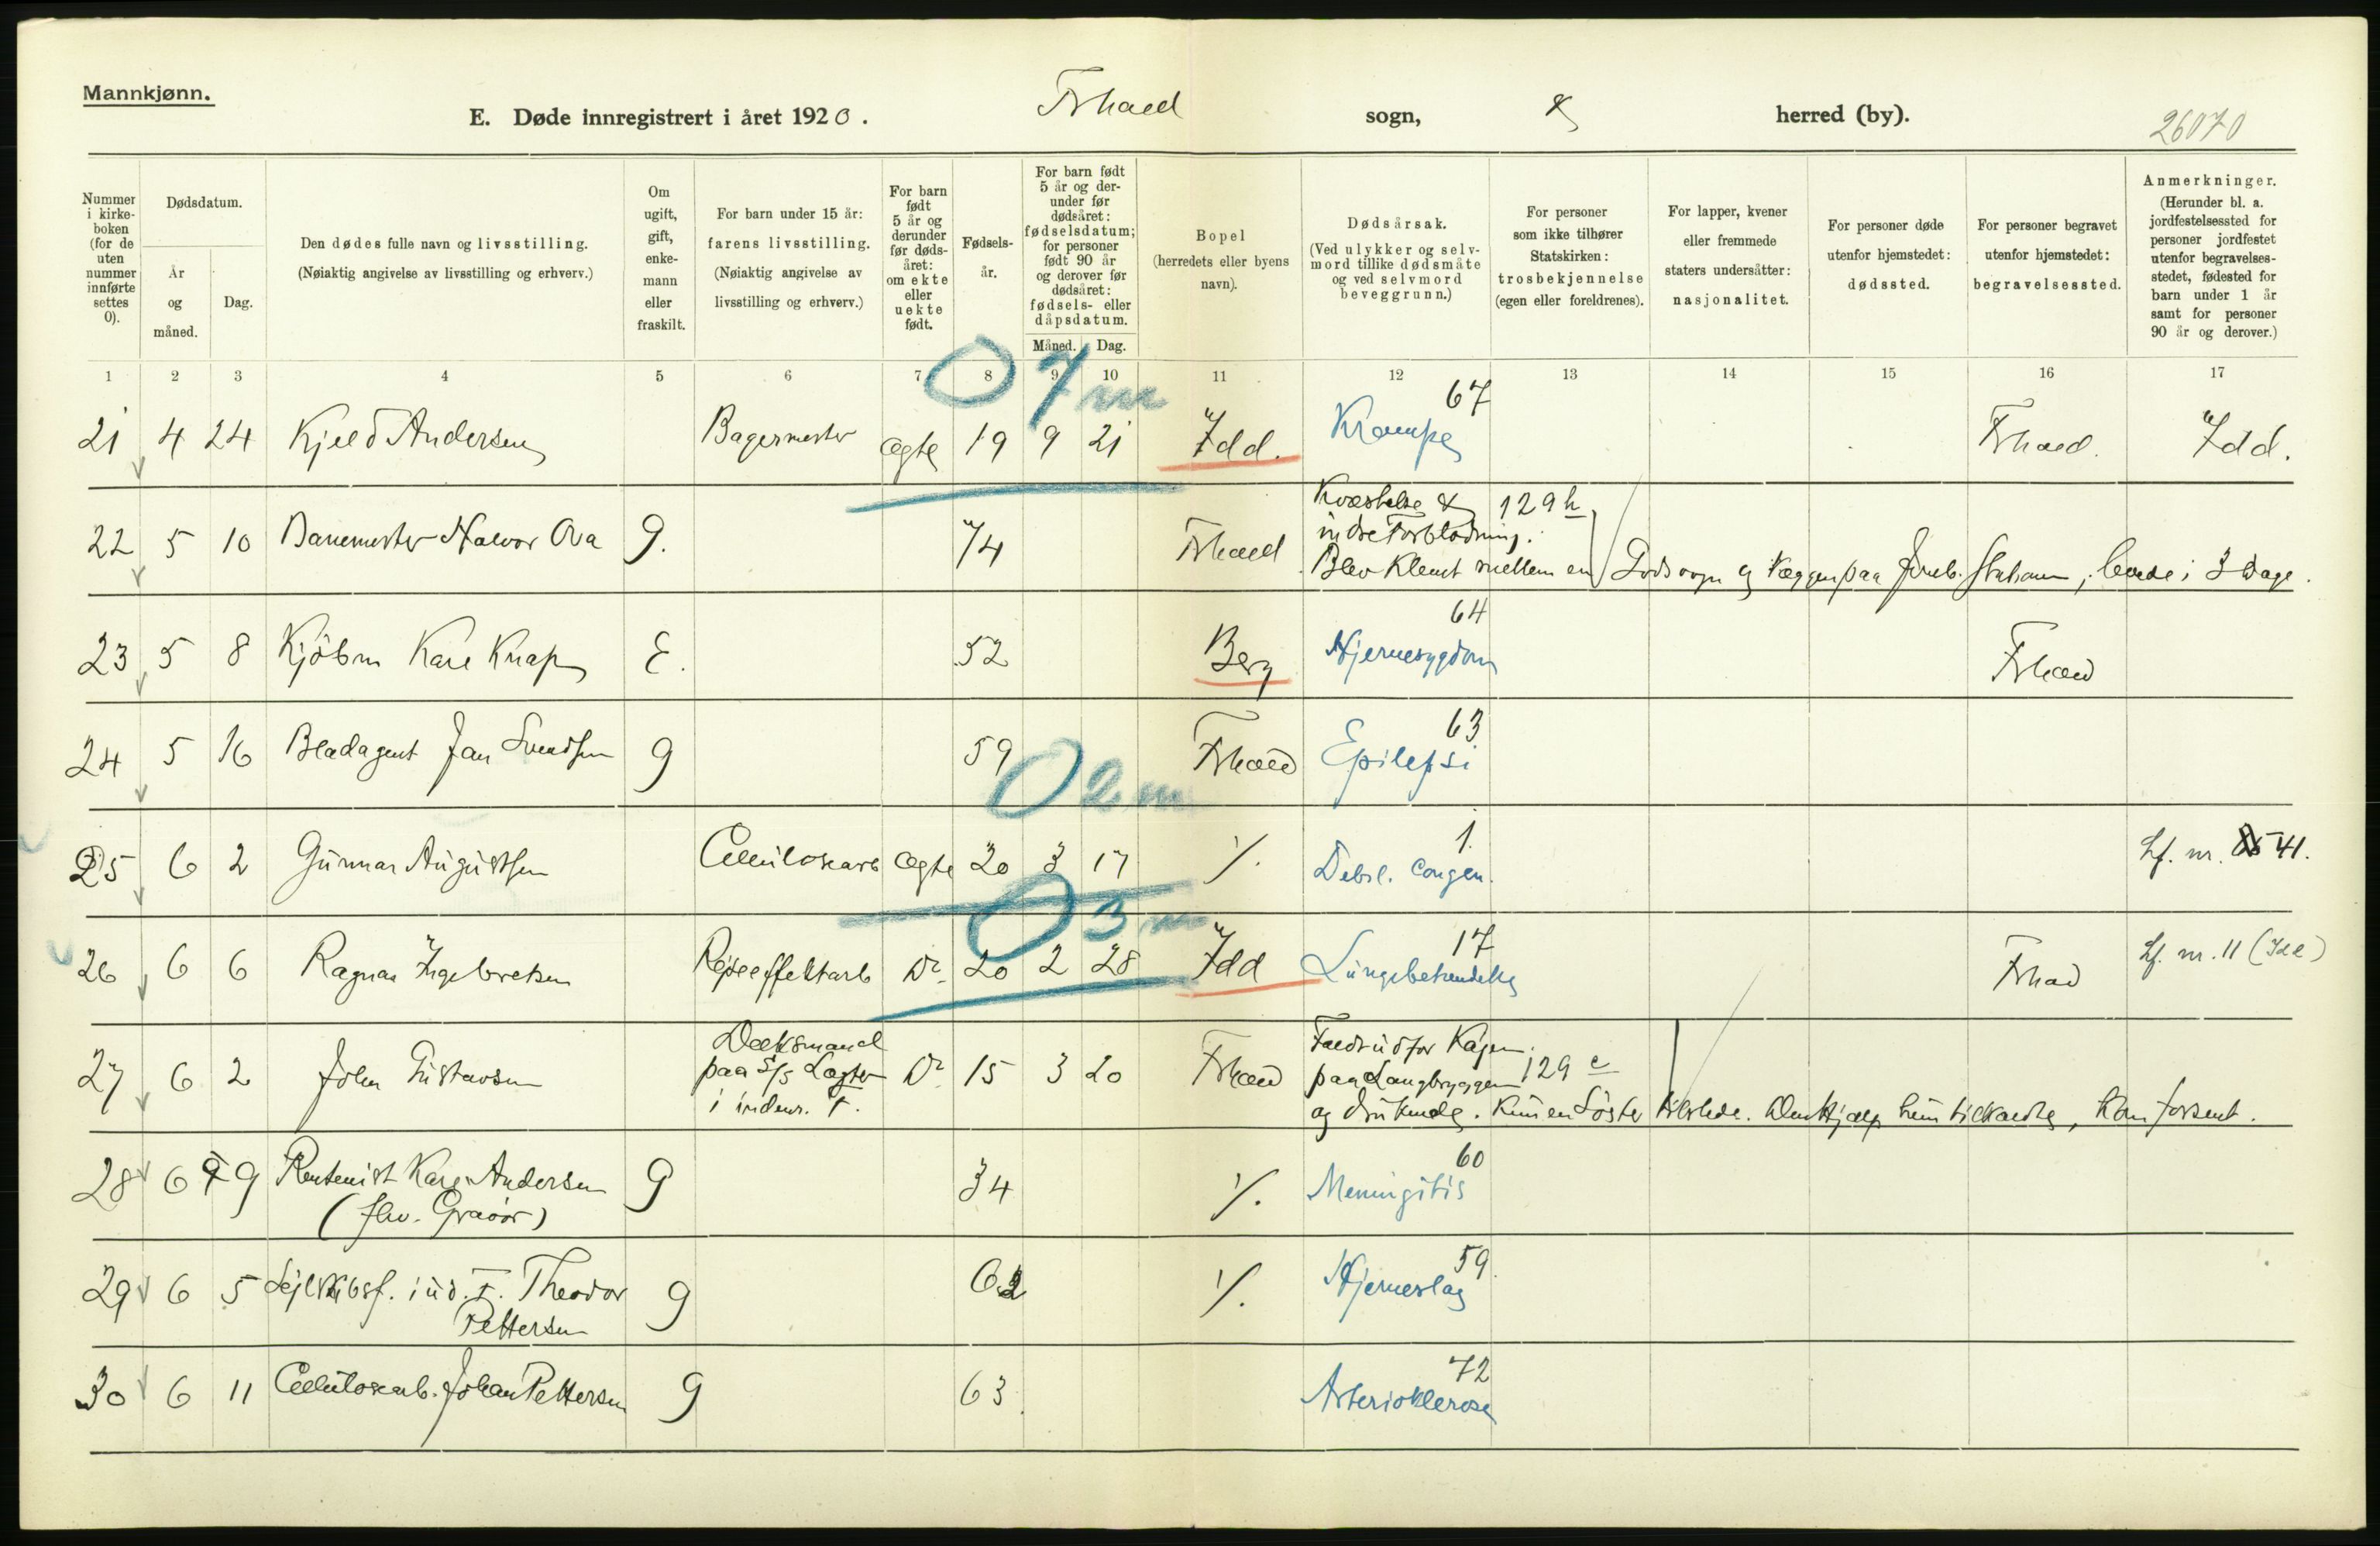 Mannkjønn.
E. Døde innregistrert i året 1920. Frhald sogn, herred (by).
26070
Nummer i kirkeboken (for de uten nummer innførte settes 0).
Dødsdatum.
År og måned.
Dag.
Den dødes fulle navn og livsstilling.
(Nøiaktig angivelse av livsstilling og erhverv.)
Om ugift, gift, enkemann eller fraskilt.
For barn under 15 år: farens livsstilling.
(Nøiaktig angivelse av livsstilling og erhverv.)
For barn født 5 år og derunder før dødsåret: om ekte eller uekte født.
Fødselsår.
For barn født 5 år og derunder før dødsåret: fødselsdatum; for personer født 90 år og derover før dødsåret: fødsels- eller dåpsdatum.
Måned. Dag.
Bopel
(herredets eller byens navn).
Dødsårsak.
(Ved ulykker og selvmord tillike dødsmåte og ved selvmord beveggrunn.)
For personer som ikke tilhører Statskirken: trosbekjennelse (egen eller foreldrenes).
For lapper, kvener eller fremmede staters undersåtter: nasjonalitet.
For personer døde utenfor hjemstedet: dødssted.
For personer begravet utenfor hjemstedet: begravelsessted.
Anmerkninger.
(Herunder bl. a. jordfestelsessted for personer jordfestet utenfor begravelsesstedet, fødested for barn under 1 år samt for personer 90 år og derover.)
1 2 3 4 5 6 7 8 9 10 11 12 13 14 15 16 17
0 7 m
67
21 4 24 Kjeld Andersen Bagermester ægte 19 9 21 Idd. Krampe Frhald. Idd.
22 5 10 Banemester Halvor Ova g. 74 Frhald Kvæstelse & 129 h
indre Forblødning.
Blev klemt mellem en Godsvogn og Væggen paa Jernb. stationen, levede i 3 Dage.
64
23 5 8 Kjøbm Karl Knap E. 52 Berg Hjernesygdom Frhald
63
24 5 16 Bladagent Jan Svendsen g 59 Frhald Epilepsi
0 2 m
1.
25 6 2 Gunnar Augustsen Cellulosearb ægte 20 3 17 Debil. Congen. Lf. nr. 41.
0 3 m
17
26 6 6 Ragnar Ingebretsen Rejseeffektarb Do 20 2 28 Idd Lungebetændelse Frhald Lf. nr. 11 (Idd)
27 6 2 John Gustavsen Dæksmand
paa S/S Lagten
i indenr. F. Do 15 3 20 Frhald Faldt ud for Kajen
paa Langbryggen 129 c
og druknede. Kun en Søster tilstede. Den Hjælp hun tilkaldte, kom forsent.
60
28 6 9 Rentenist Karl Andersen g 34 Meningitis
(fhv. Graver)
59
29 6 5 Sejlskibsf. i ud. F. Theodor g 62 Hjerneslag
Pettersen
72
30 6 11 Cellulosearb. Johan Pettersen g 63 Arteriosklerose